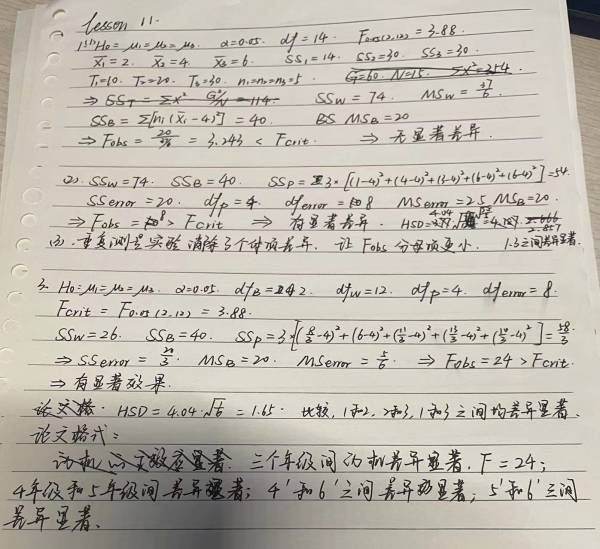 Lesson 11.
1. (1) H0=μ1=μ2=μ3. α=0.05. df=14. F0.05(2,12)=3.88.
X̄1=2. X̄2=4. X̄3=6. SS1=14. SS2=30 SS3=30.
T1=10. T2=20. T3=30. n1=n2=n3=5. G=60. N=15. Σx²=354
⇒ SST=Σx² - G²/N = 114. SSW=74. MSW=37/6.
SSB=Σ[ni(X̄i-4)²]=40. MSB=20
⇒ Fobs = = 3.243 < Fcrit. ⇒ 无显著差异.
(2). SSW=74. SSB=40. SSP=3×[(1-4)²+(4-4)²+(3-4)²+(6-4)²+(6-4)²]=54.
SSerror=20. dfp=4. dferror=8 MSerror=2.5 MSB=20.
⇒ Fobs=8 > Fcrit ⇒ 有显著差异. HSD=4.04 2.857
(3). 重复测量实验消除了个体差异. 让Fobs分母项变小. 1.3之间差异显著.
3. H0=μ1=μ2=μ3. α=0.05. dfB=2. dfW=12. dfp=4. dferror=8.
Fcrit=F0.05(2,12)=3.88.
SSW=26. SSB=40. SSP=3×[(8/3-4)²+(6-4)²+(11/3-4)²+(13/3-4)²+(10/3-4)²]=58/3
⇒ SSerror=20/3. MSB=20. MSerror=5/6. ⇒ Fobs=24 > Fcrit.
⇒ 有显著效果.
HSD=4.04·√ =1.65. 比较, 1和2, 2和3, 1和3之间均差异显著.
论文格式:
三个年级间动机差异显著. F=24;
4年级和5年级间差异显著; 4'和6'之间差异显著; 5'和6'之间
差异显著.